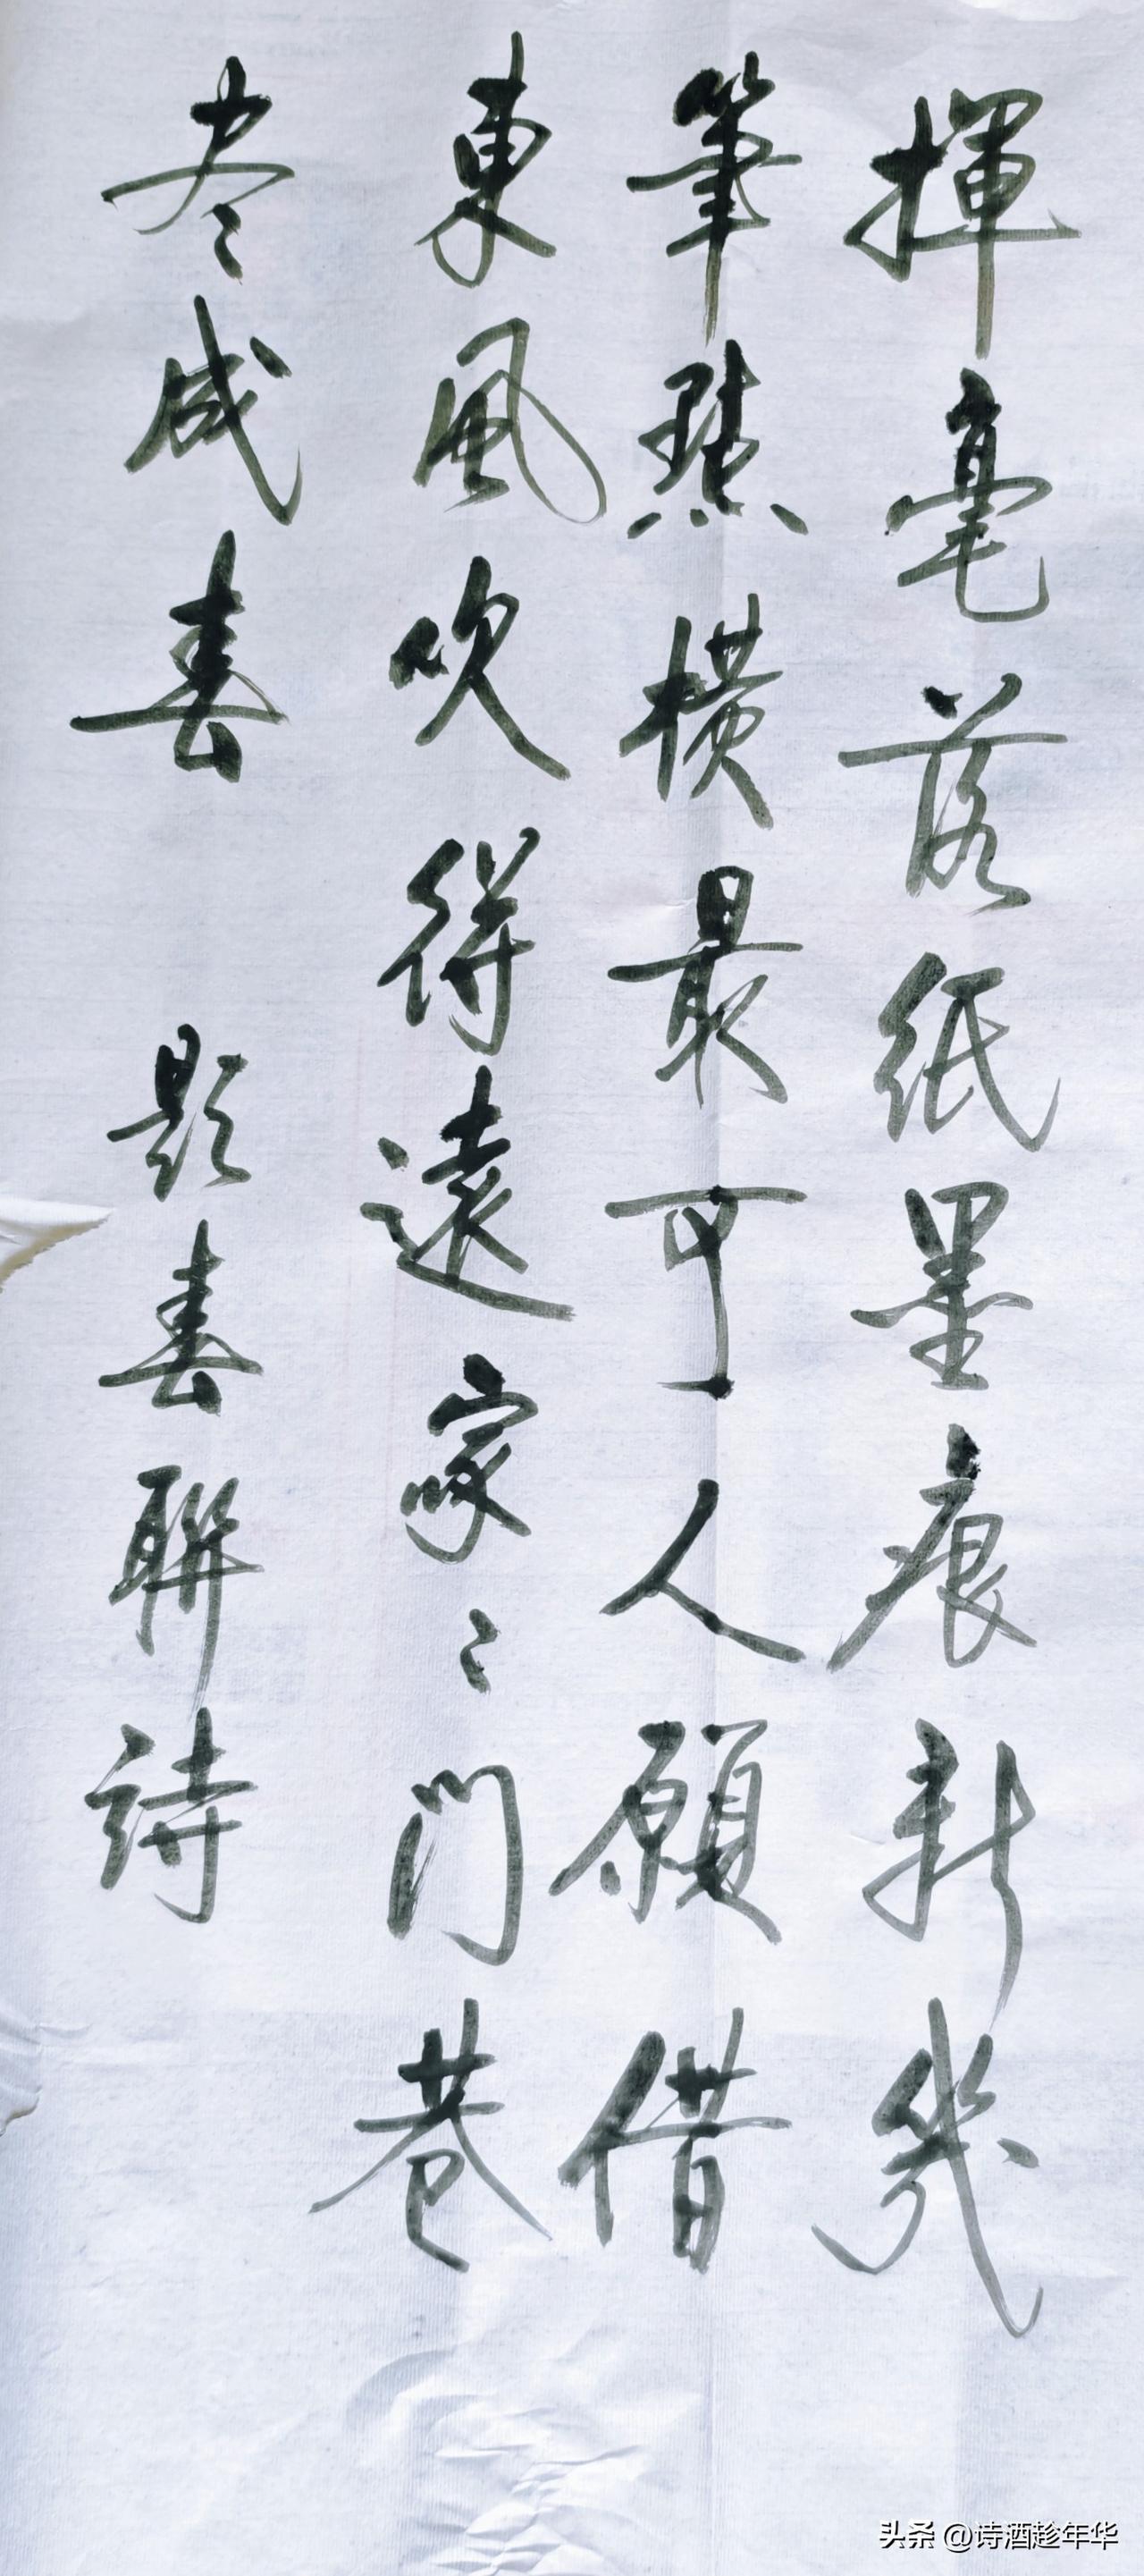 揮毫落纸墨痕新幾
筆點橫最可人願借
東風吹得遠家〻門巷
尽成春 題春聯詩
头条 @诗酒趁年华